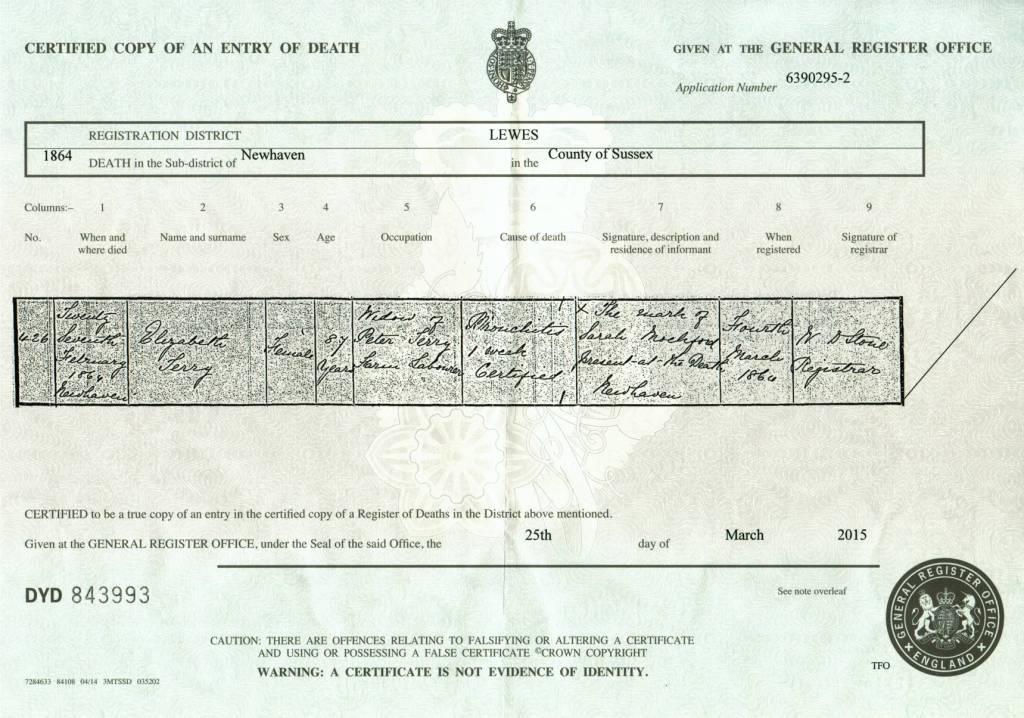 CERTIFIED COPY OF AN ENTRY OF DEATH
GIVEN AT THE GENERAL REGISTER OFFICE
Application Number 6390295-2
REGISTRATION DISTRICT LEWES
1864 DEATH in the Sub-district of Newhaven in the County of Sussex
Columns:– 1 2 3 4 5 6 7 8 9
No. When and where died Name and surname Sex Age Occupation Cause of death Signature, description and residence of informant When registered Signature of registrar
426
Twenty
Seventh
February
1864
Newhaven
Elizabeth
Terry
Female
87
Years
Widow of
Peter Terry
Farm Labourer
Bronchitis
1 week
Certified
X The mark of
Sarah Mockford
present at the Death
Newhaven
Fourth
March
1864
W D Stone
Registrar
CERTIFIED to be a true copy of an entry in the certified copy of a Register of Deaths in the District above mentioned.
Given at the GENERAL REGISTER OFFICE, under the Seal of the said Office, the 25th day of March 2015
DYD 843993
See note overleaf
CAUTION: THERE ARE OFFENCES RELATING TO FALSIFYING OR ALTERING A CERTIFICATE
AND USING OR POSSESSING A FALSE CERTIFICATE ©CROWN COPYRIGHT
WARNING: A CERTIFICATE IS NOT EVIDENCE OF IDENTITY.
7284633 84108 04/14 3MTSSD 035202
TFO
GENERAL REGISTER OFFICE
ENGLAND